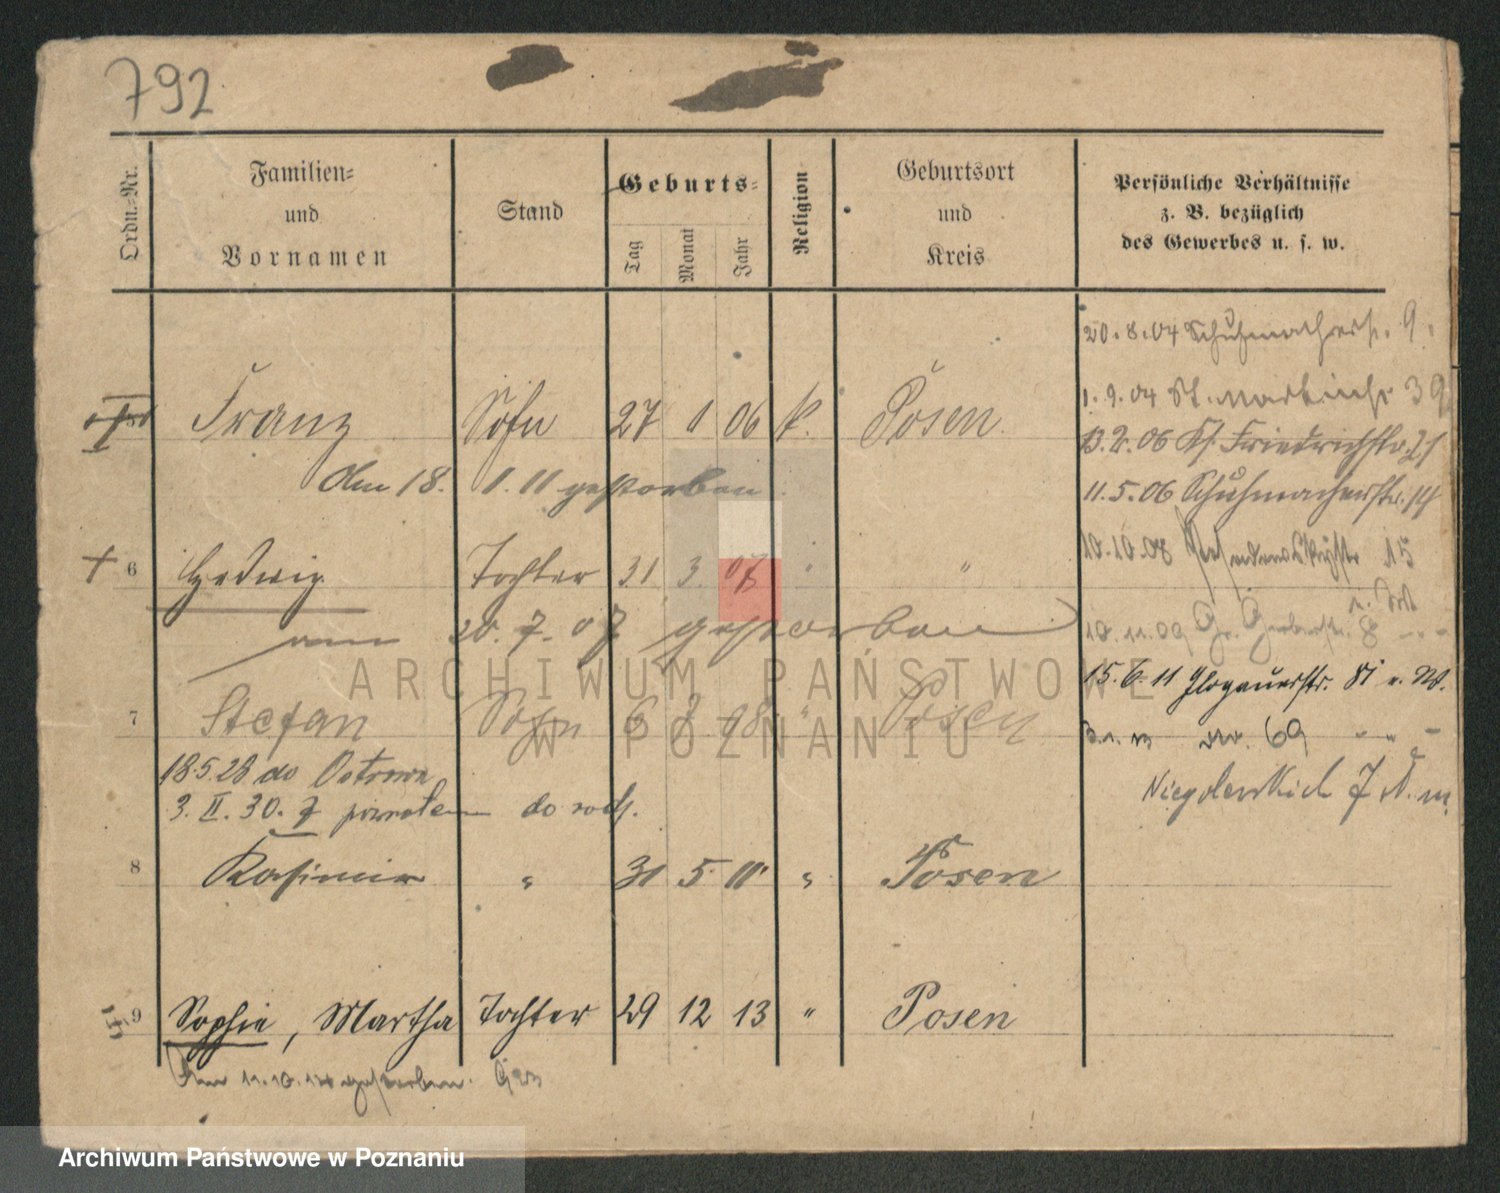 792
Ordn.-Nr.
Familien-
und
Vornamen
Stand
Geburts-
Tag
Monat
Jahr
Religion
Geburtsort
und
Kreis
Persönliche Verhältnisse
z. B. bezüglich
des Gewerbes u. s. w.
20.8.04 Schuhmacherstr. 9.
1.9.04 St. Martinstr 39
Franz Sohn 27 1 06 k. Posen
13.2.06 Friedrichstr.
den 18. 1. 11 gestorben
11.5.06 Schuhmacherstr. 14
10.10.08 15
6 Hedwig Tochter 31 3 07 " "
am 20. 7. 07 gestorben
10.11.09 Gr. Gerberstr. 8
15.6.11 Glogauerstr. 81
7 Stefan Sohn 6 7 08 " Posen
69
18.5.28 do Ostrowa
3. II. 30. z powrotem do rodz.
Niegolewskich 7
8 Kasimir " 31 5 11 " Posen
9 Sophie, Martha Tochter 29 12 13 " Posen
gestorben.
ARCHIWUM PAŃSTWOWE
W POZNANIU
Archiwum Państwowe w Poznaniu